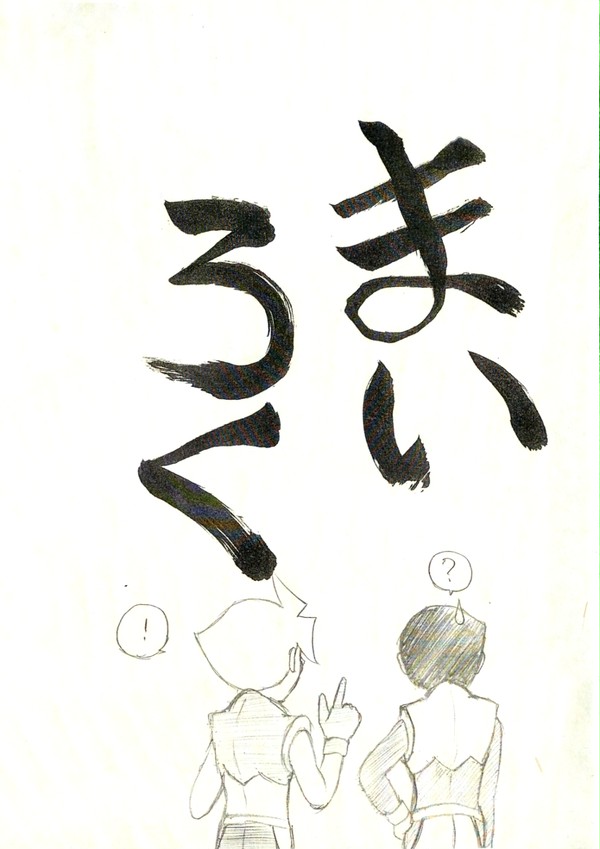 まい
ろく
!
?